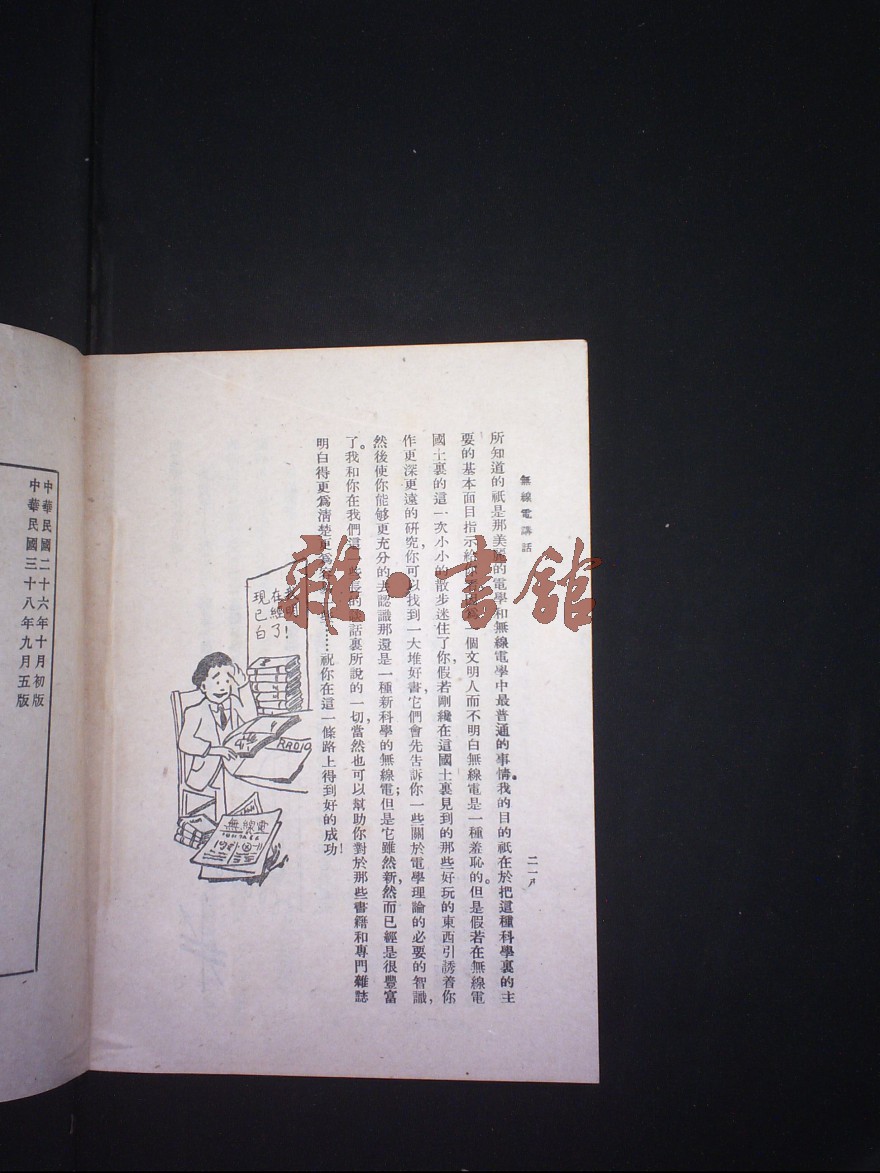 無線電講話
二一八
所知道的祇是那美麗的電學和無線電學中最普通的事情。我的目的祇在於把這種科學裏的主
要的基本面目指示給你 一個文明人而不明白無線電是一種羞恥的。但是假若在無線電
國土裏的這一次小小的散步迷住了你，假若剛纔在這國土裏見到的那些好玩的東西引誘着你
作更深更遠的研究，你可以找到一大堆好書，它們會先告訴你一些關於電學理論的必要的智識，
然後使你能够更充分的去認識那還是一種新科學的無線電；但是它雖然新，然而已經是很豐富
了。我和你在我們這一些長的談話裏所說的一切，當然也可以幫助你對於那些書籍和專門雜誌
明白得更爲清楚更爲 ……祝你在這一條路上得到好的成功！
我明
在經了！
現已白
RADIO
無線電
雜·書館
中華民國二十六年十月初版
中華民國三十八年九月五版